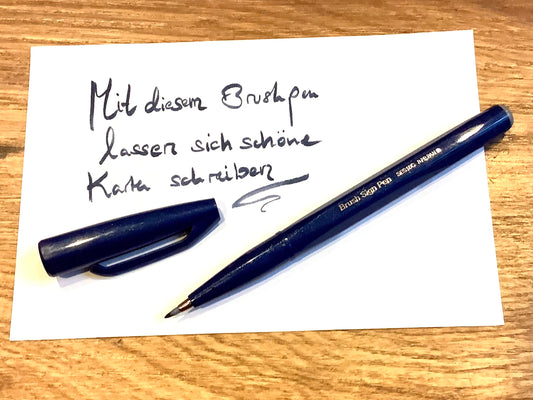 Mit diesem Brushpen
lassen sich schöne
Karten schreiben
Brush Sign Pen